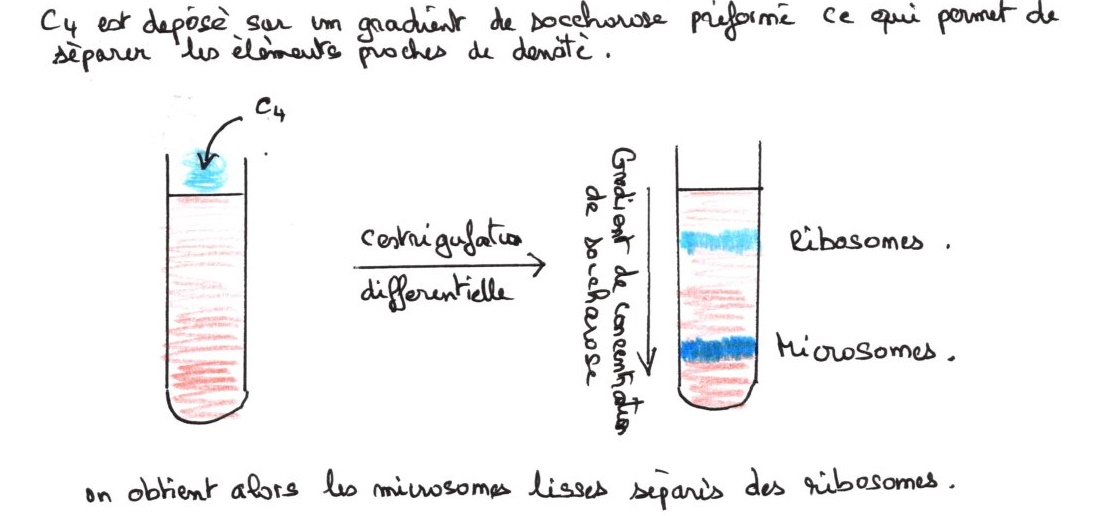 C4 est déposè sur un gradient de saccharose préformé ce qui permet de
sèparer les èlèments proches de densitè.
C4
centrigufation
differentielle
Gradient de concentration
de saccharose
Ribosomes.
Microsomes.
on obtient alors les microsomes lisses sèparès des ribosomes.